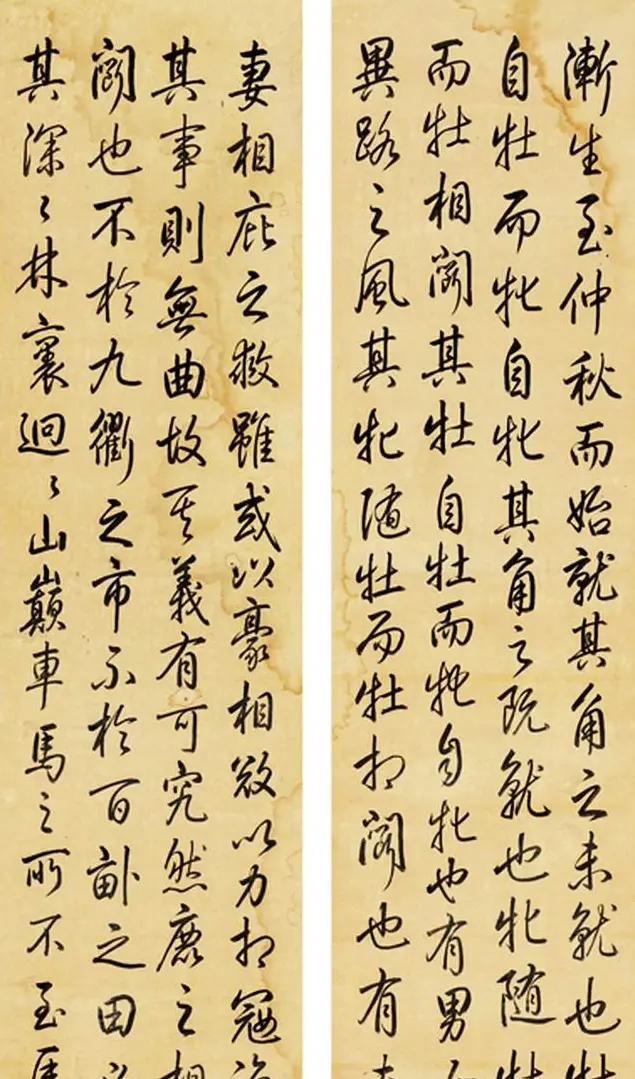 漸生至仲秋而始就其角之未就也牡
自牡而牝自牝其角之既就也牝隨牡
而牡相鬪其牡自牡而牝自牝也有男
異路之風其牝随牡而牡相鬪也有夫
妻相庇之救雖或以豪相效以力相寇
其事則無曲故其義有可究然鹿之相
鬪也不於九衢之市不於百畝之田
其深〻林裏迥〻山巔車馬之所不至